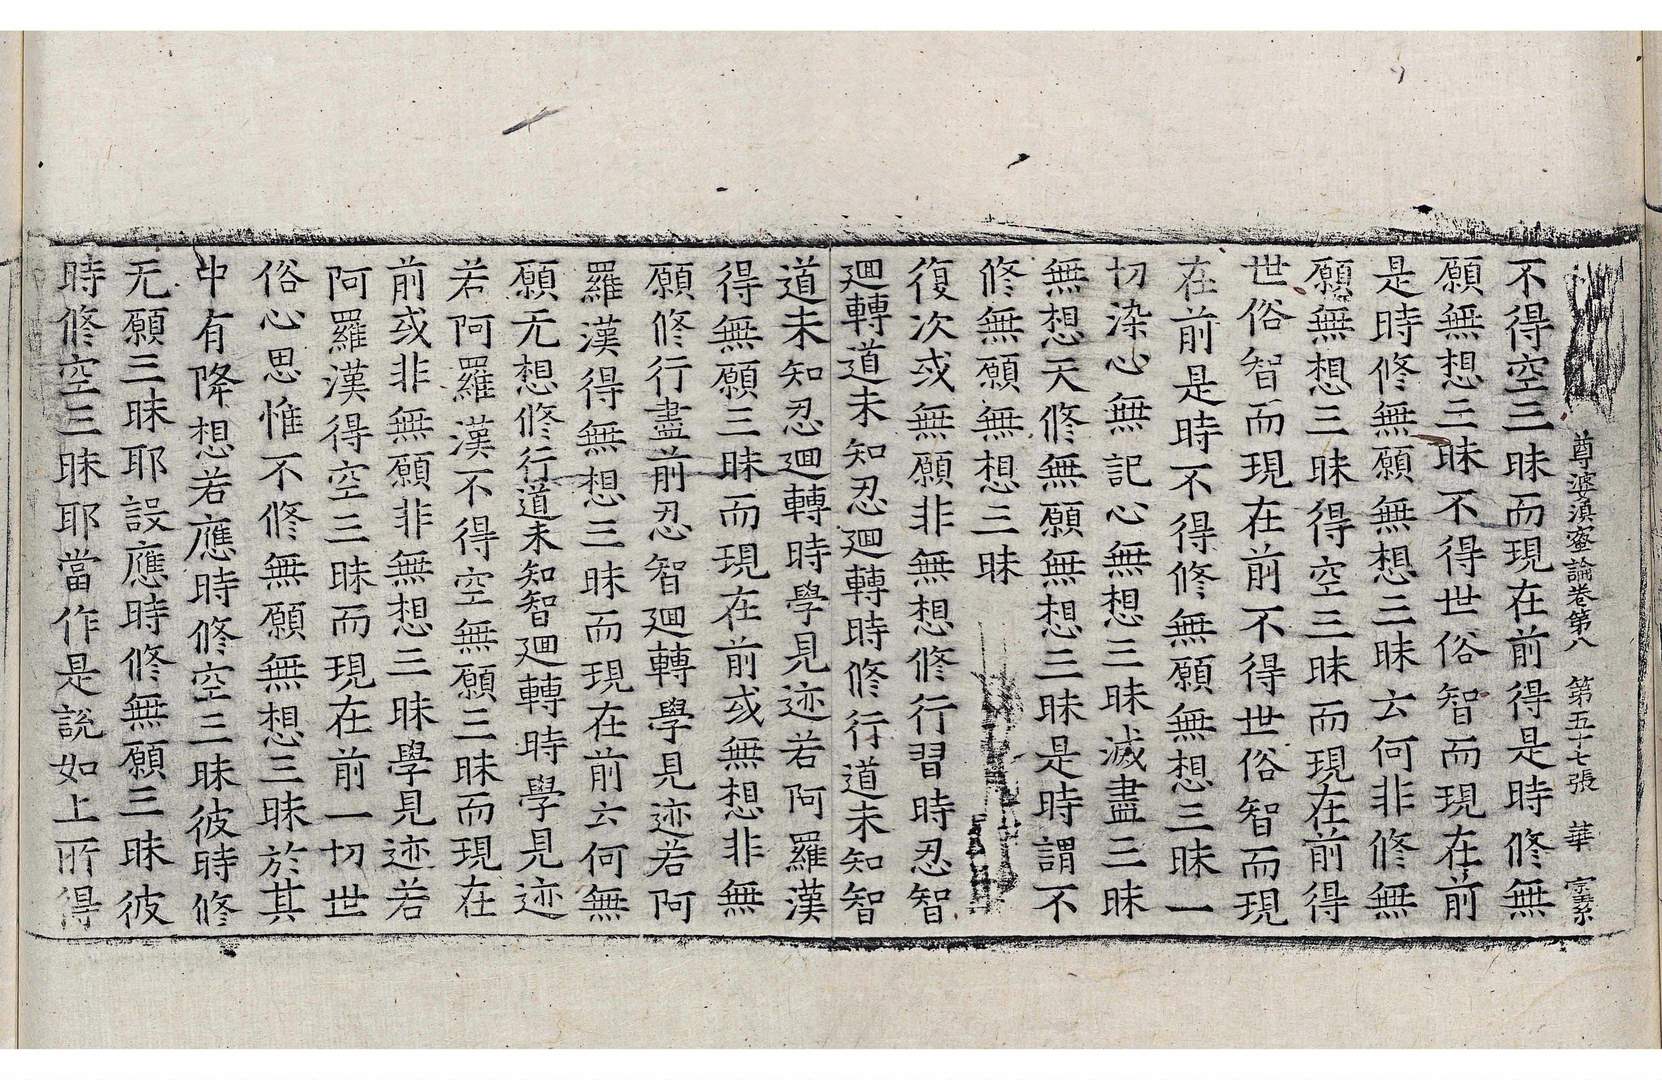 尊婆湏蜜論卷第八 第五十七張 華 宗素
不得空三昧而現在前得是時修無
願無想三昧不得世俗智而現在前
是時修無願無想三昧云何非修無
願無想三昧得空三昧而現在前得
世俗智而現在前不得世俗智而現
在前是時不得修無願無想三昧一
切染心無記心無想三昧滅盡三昧
無想天修無願無想三昧是時謂不
修無願無想三昧
復次或無願非無想修行習時忍智
廻轉道未知忍廻轉時修行道未知智
道未知忍廻轉時學見迹若阿羅漢
得無願三昧而現在前或無想非無
願修行盡前忍智廻轉學見迹若阿
羅漢得無想三昧而現在前云何無
願无想修行道未知智廻轉時學見迹
若阿羅漢不得空無願三昧而現在
前或非無願非無想三昧學見迹若
阿羅漢得空三昧而現在前一切世
俗心思惟不修無願無想三昧於其
中有降想若應時修空三昧彼時修
无願三昧耶設應時修無願三昧彼
時修空三昧耶當作是說如上所得